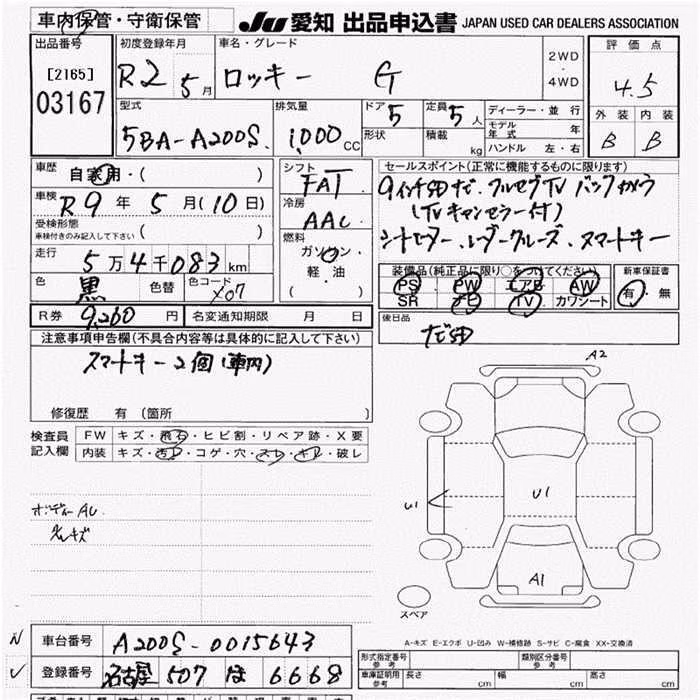 車内保管・守衛保管
JU 愛知 出品申込書 JAPAN USED CAR DEALERS ASSOCIATION
出品番号 初度登録年月 車名・グレード 評価点
[2165] R2 5月 ロッキー G 2WD・4WD 4.5
03167
型式 排気量 ドア 5 定員 5人 ディーラー・並行 外装 内装
5BA-A200S 1,000 CC 形状 積載 kg モデル年式 年 B B
ハンドル 左・右
車歴 自家用・( ) シフト FAT セールスポイント(正常に機能するものに限ります)
車検 R9年 5月(10日) 冷房 AAC 9インチSDナビ、フルセグTV バックカメラ
(TVキャンセラー付)
受検形態 車検付きのみ記入して下さい ( ) 燃料 ガソリン・軽油 ( ) シートヒーター、レーダークルーズ、スマートキー
走行 5万4千083km
装備品(純正品に限り○をつけてください) 新車保証書
色 黒 色替 色コード X07 PS PW エアB AW 有・無
SR ナビ TV カワシート
R券 9,260円 名変通知期限 月 日 後日品
注意事項申告欄(不具合内容等は具体的に記入して下さい) ナビSD
スマートキー2個(車内)
A2
修復歴 有 (箇所 )
検査員記入欄 FW キズ・飛石・ヒビ割・リペア跡・X要
内装 キズ・汚レ・コゲ・穴・スレ・キレ・破レ
U1 U1
ボディーAU
小キズ
A1
スペア
A-キズ E-エクボ U-凹み W-補修跡 S-サビ C-腐食 XX-交換済
N 車台番号 A200S-0015643
形式指定番号 参考 類別区分番号 参考
レ 登録番号 名古屋 507 ほ 6668 車庫証明用 参考 長さ cm 幅 cm 高さ cm